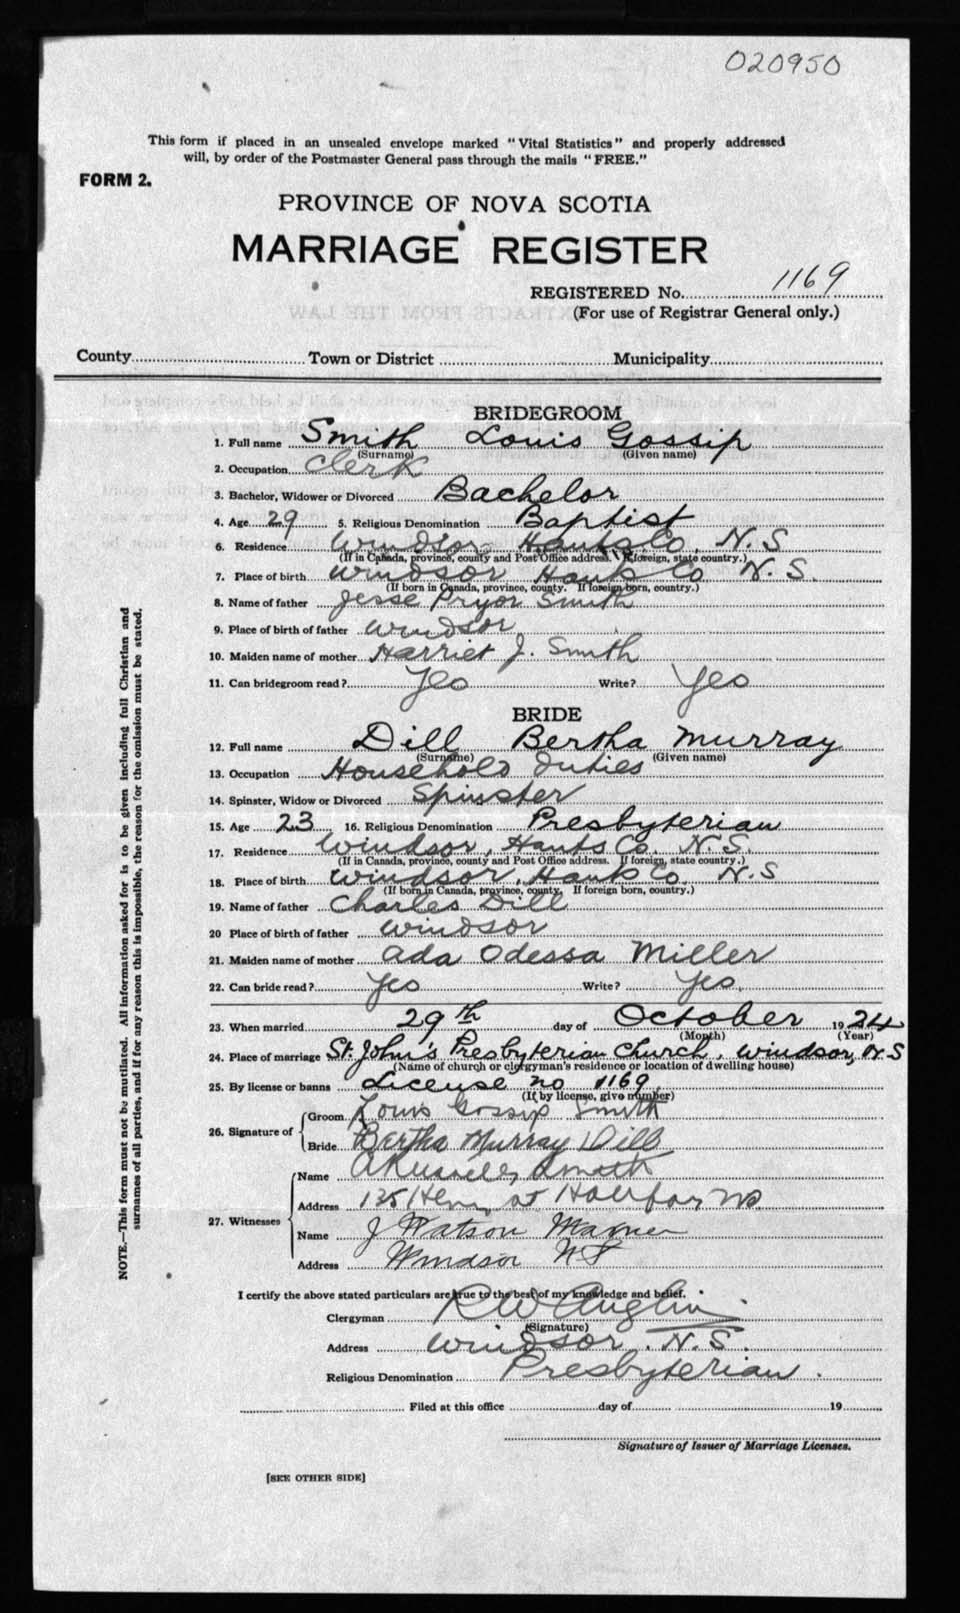 020950
This form if placed in an unsealed envelope marked "Vital Statistics" and properly addressed
will, by order of the Postmaster General pass through the mails "FREE."
FORM 2.
PROVINCE OF NOVA SCOTIA
MARRIAGE REGISTER
REGISTERED No. 1169
(For use of Registrar General only.)
County Town or District Municipality
BRIDEGROOM
1. Full name Smith Louis Gossip
(Surname) (Given name)
2. Occupation Clerk
3. Bachelor, Widower or Divorced Bachelor
4. Age 29 5. Religious Denomination Baptist
6. Residence Windsor, Hants Co. N.S
(If in Canada, province, county and Post Office address. If foreign, state country.)
7. Place of birth Windsor Hants Co N.S.
(If born in Canada, province, county. If foreign born, country.)
8. Name of father Jesse Pryor Smith
9. Place of birth of father Windsor
10. Maiden name of mother Harriet J. Smith
11. Can bridegroom read? Yes Write? Yes
BRIDE
12. Full name Dill Bertha Murray
(Surname) (Given name)
13. Occupation Household Duties
14. Spinster, Widow or Divorced Spinster
15. Age 23 16. Religious Denomination Presbyterian
17. Residence Windsor, Hants Co. N.S.
(If in Canada, province, county and Post Office address. If foreign, state country.)
18. Place of birth Windsor, Hants Co N.S
(If born in Canada, province, county. If foreign born, country.)
19. Name of father Charles Dill
20 Place of birth of father Windsor
21. Maiden name of mother Ada Odessa Miller
22. Can bride read? Yes Write? Yes.
23. When married 29th day of October 1924
(Month) (Year)
24. Place of marriage St. John's Presbyterian Church, Windsor, N.S
(Name of church or clergyman's residence or location of dwelling house)
25. By license or banns License no 1169
(If by license, give number)
26. Signature of Groom Louis Gossip Smith
Bride Bertha Murray Dill
27. Witnesses Name Smith
Address St Halifax NS.
Name J Watson
Address Windsor NS
I certify the above stated particulars are true to the best of my knowledge and belief.
Clergyman R W Anglin
(Signature)
Address Windsor, N.S.
Religious Denomination Presbyterian.
Filed at this office day of 19
Signature of Issuer of Marriage Licenses.
[SEE OTHER SIDE]
NOTE.—This form must not be mutilated. All information asked for is to be given including full Christian and
surnames of all parties, and if for any reason this is impossible, the reason for the omission must be stated.